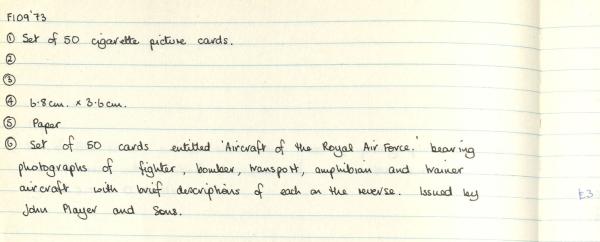 F109'73
① Set of 50 cigarette picture cards.
②
③
④ 6.8cm. x 3.6cm.
⑤ Paper
⑥ Set of 50 cards entitled 'Aircraft of the Royal Air Force.' bearing
photographs of fighter, bomber, transport, amphibian and trainer
aircraft with brief descriptions of each on the reverse. Issued by
John Player and Sons.
£3